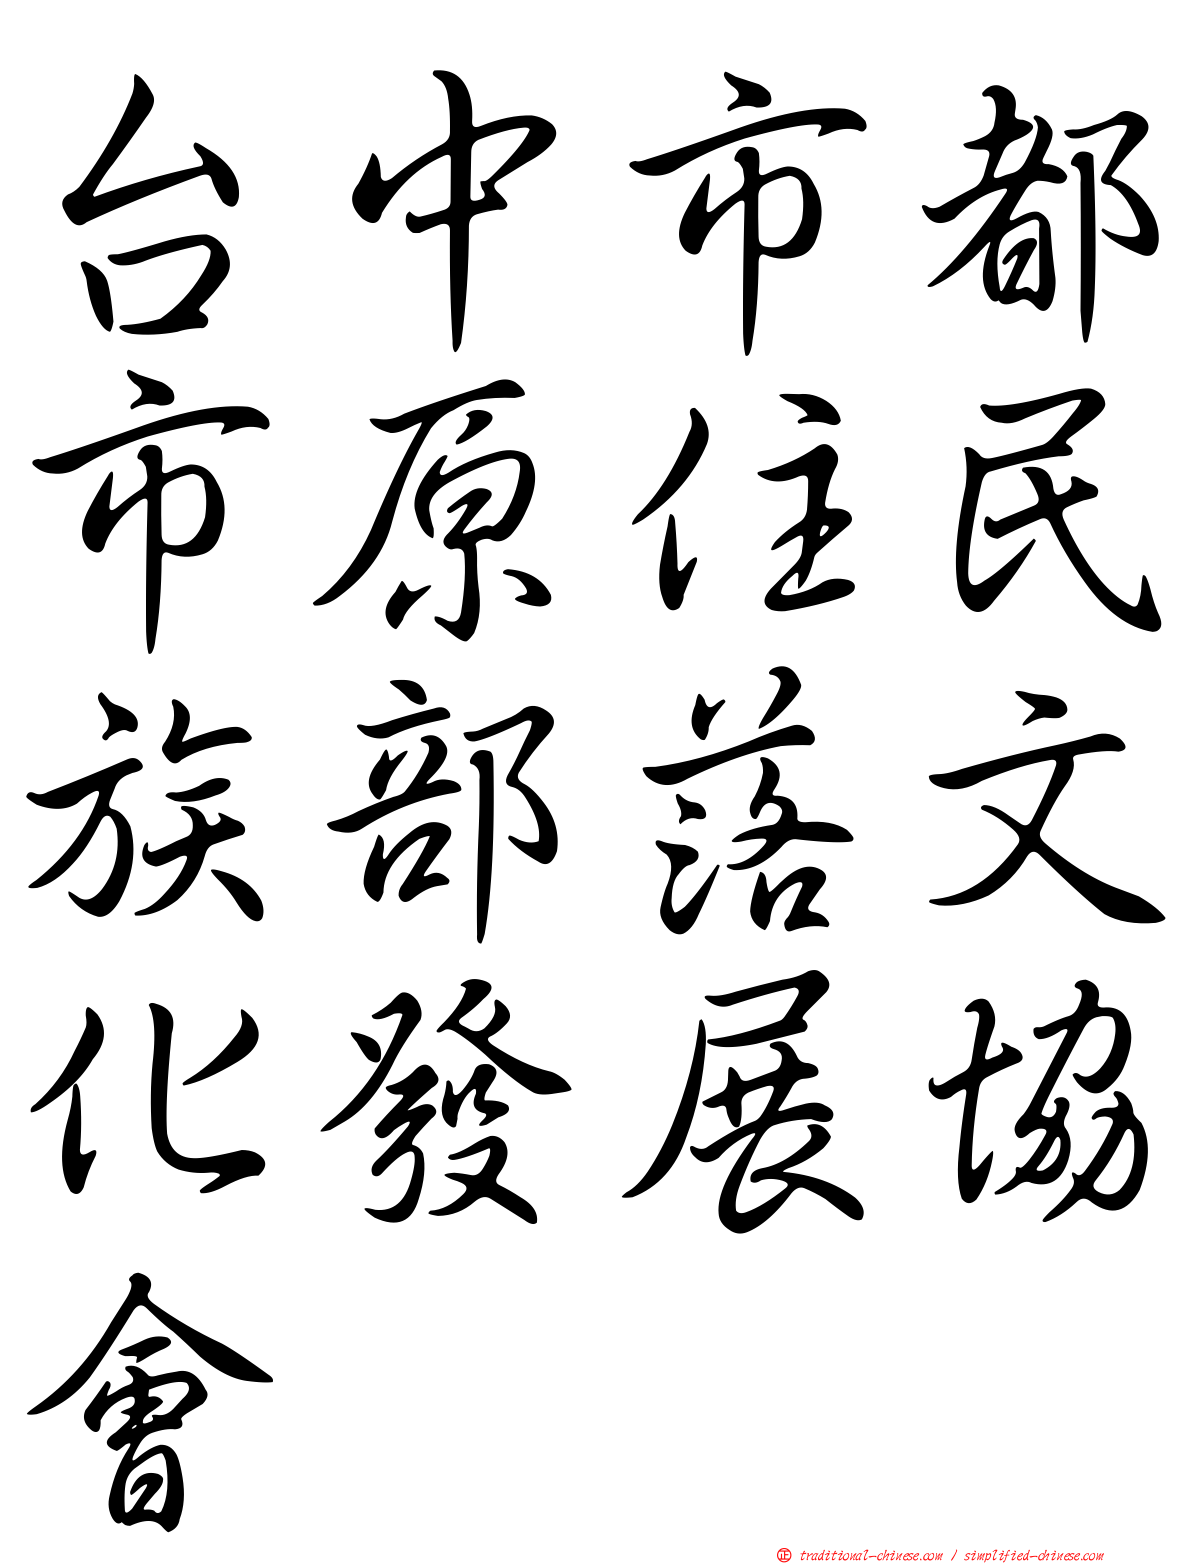 台中市都
市原住民
族部落文
化發展協
會
㊣ traditional-chinese.com / simplified-chinese.com